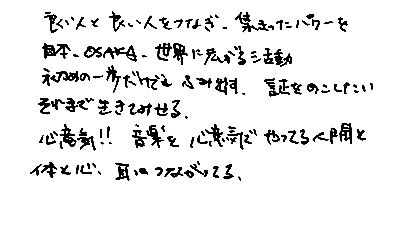 良い人と良い人をつなぎ、集まったパワーを
日本、OSAKA、世界に広がる活動
その為の一歩だけでもふみ出す。証をのこしたい
それまで生きてみせる。
心意気!! 音楽を心意気でやってる人間と
体と心、耳はつながってる。